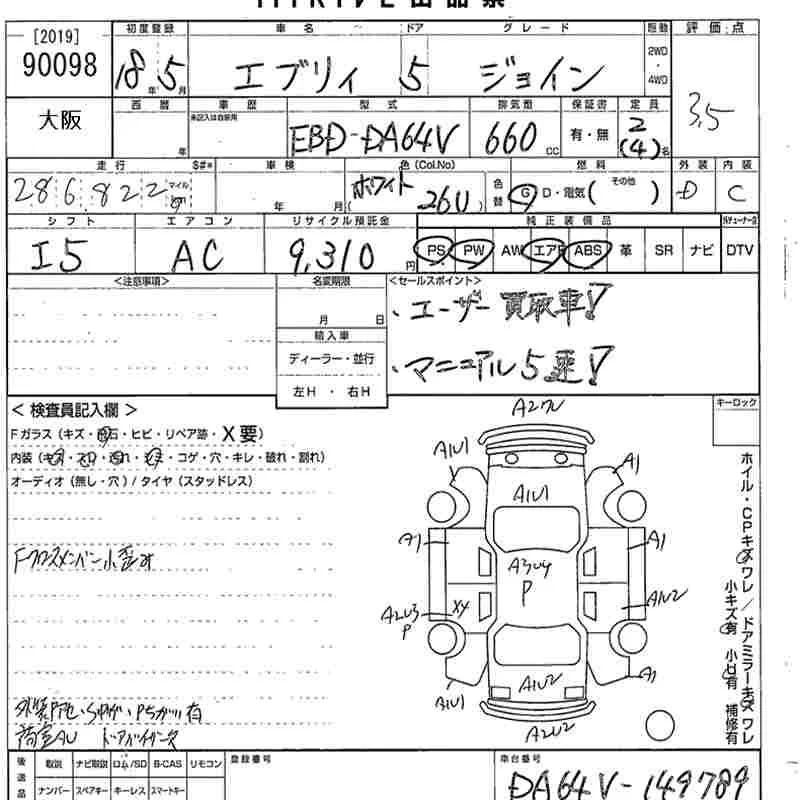 [2019]
90098
大阪
初度登録
18年5月
車名
エブリィ
ドア
5
グレード
ジョイン
駆動
2WD
・
4WD
評価点
3,5
西暦
年
車歴
未記入は自家用
型式
EBD-DA64V
排気量
660 cc
保証書
有・無
定員
2
(4)名
走行
286,822 マイル km
S#*
車検
年 月
色(Col.No)
ホワイト 26U
色替
燃料
G D・電気( その他 )
外装
D
内装
C
シフト
I5
エアコン
AC
リサイクル預託金
9,310 円
純正装備品
PS PW AW エアB ABS 革 SR ナビ DTV
<注意事項>
名変期限
月 日
輸入車
ディーラー・並行
左H ・ 右H
<セールスポイント>
・ユーザー買取車▽
・マニュアル5速▽
<検査員記入欄>
Fガラス(キズ・飛石・ヒビ・リペア跡・X要)
内装(キズ・スリ・汚れ・ ・コゲ・穴・キレ・破れ・割れ)
オーディオ(無し・穴)/タイヤ(スタッドレス)
Fクロスメンバー小歪み
有
荷室AU ドアバイザー欠
キーロック
A2ワレ
A1U1
A1
A1U1
A1
A1
A3U4
P
A2U3
P
XY
A1U2
A1U1
A1
A1U2
A2U2
ホイル・CPキズワレ/ドアミラーキズワレ
小キズ有 小凹有 補修有
後送品
取説 ナビ取説 ロム/SD B-CAS リモコン
ナンバー スペアキー キーレス スマートキー
登録番号
車台番号
DA64V-149789